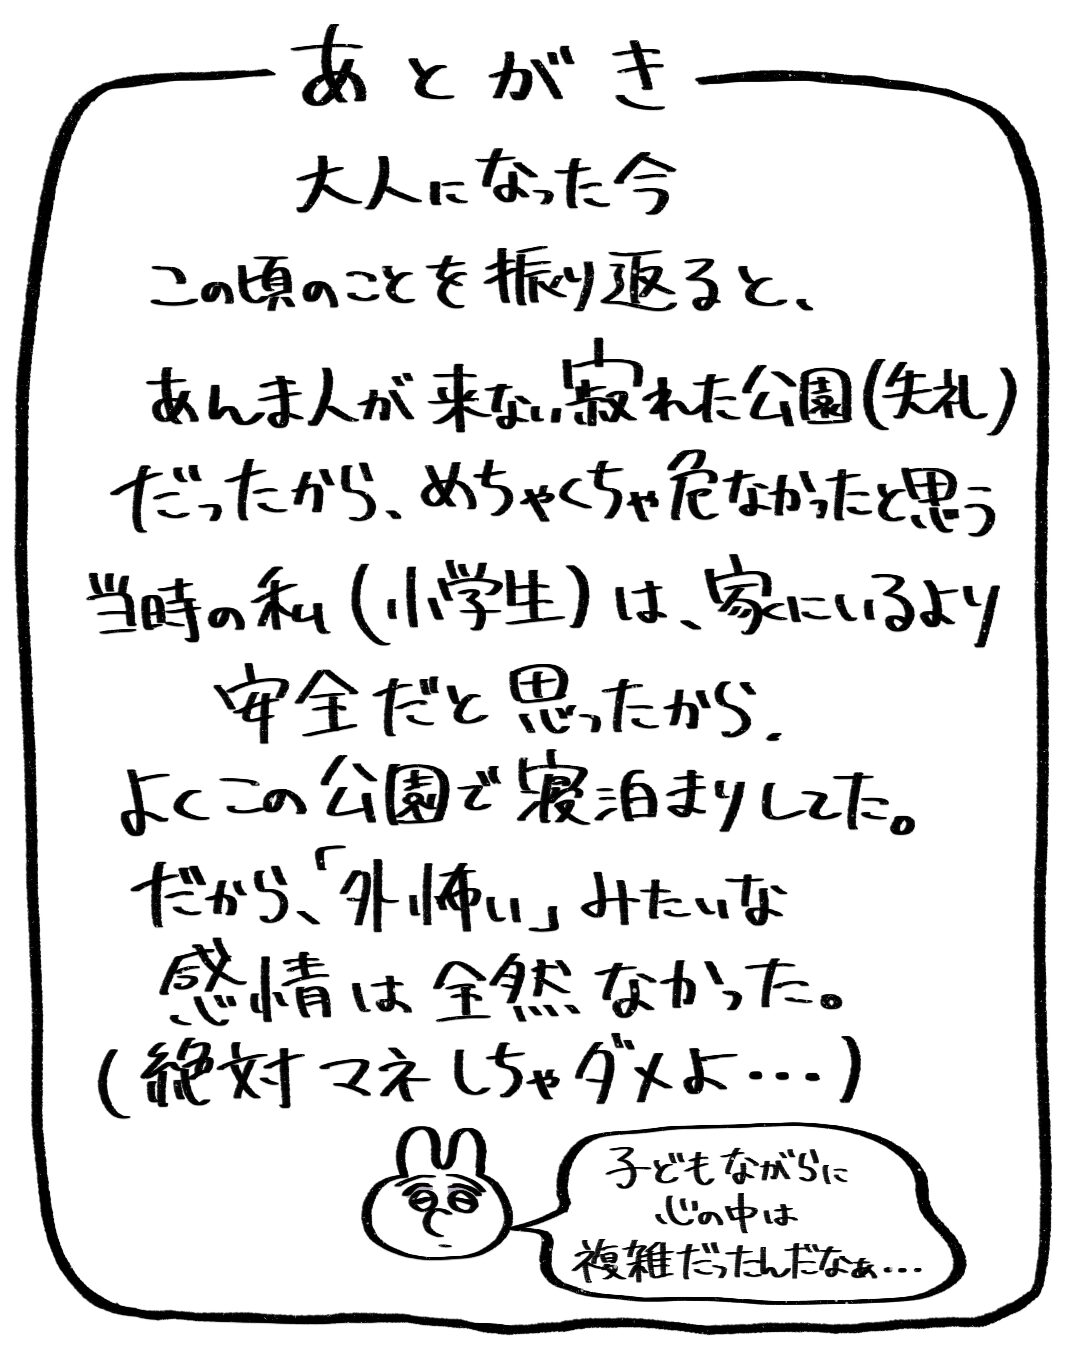 あとがき
大人になった今
この頃のことを振り返ると、
あんま人が来ない寂れた公園(失礼)
だったから、めちゃくちゃ危なかったと思う
当時の私(小学生)は、家にいるより
安全だと思ったから、
よくこの公園で寝泊まりしてた。
だから、「外怖い」みたいな
感情は全然なかった。
(絶対マネしちゃダメよ・・・)
子どもながらに
心の中は
複雑だったんだなぁ・・・